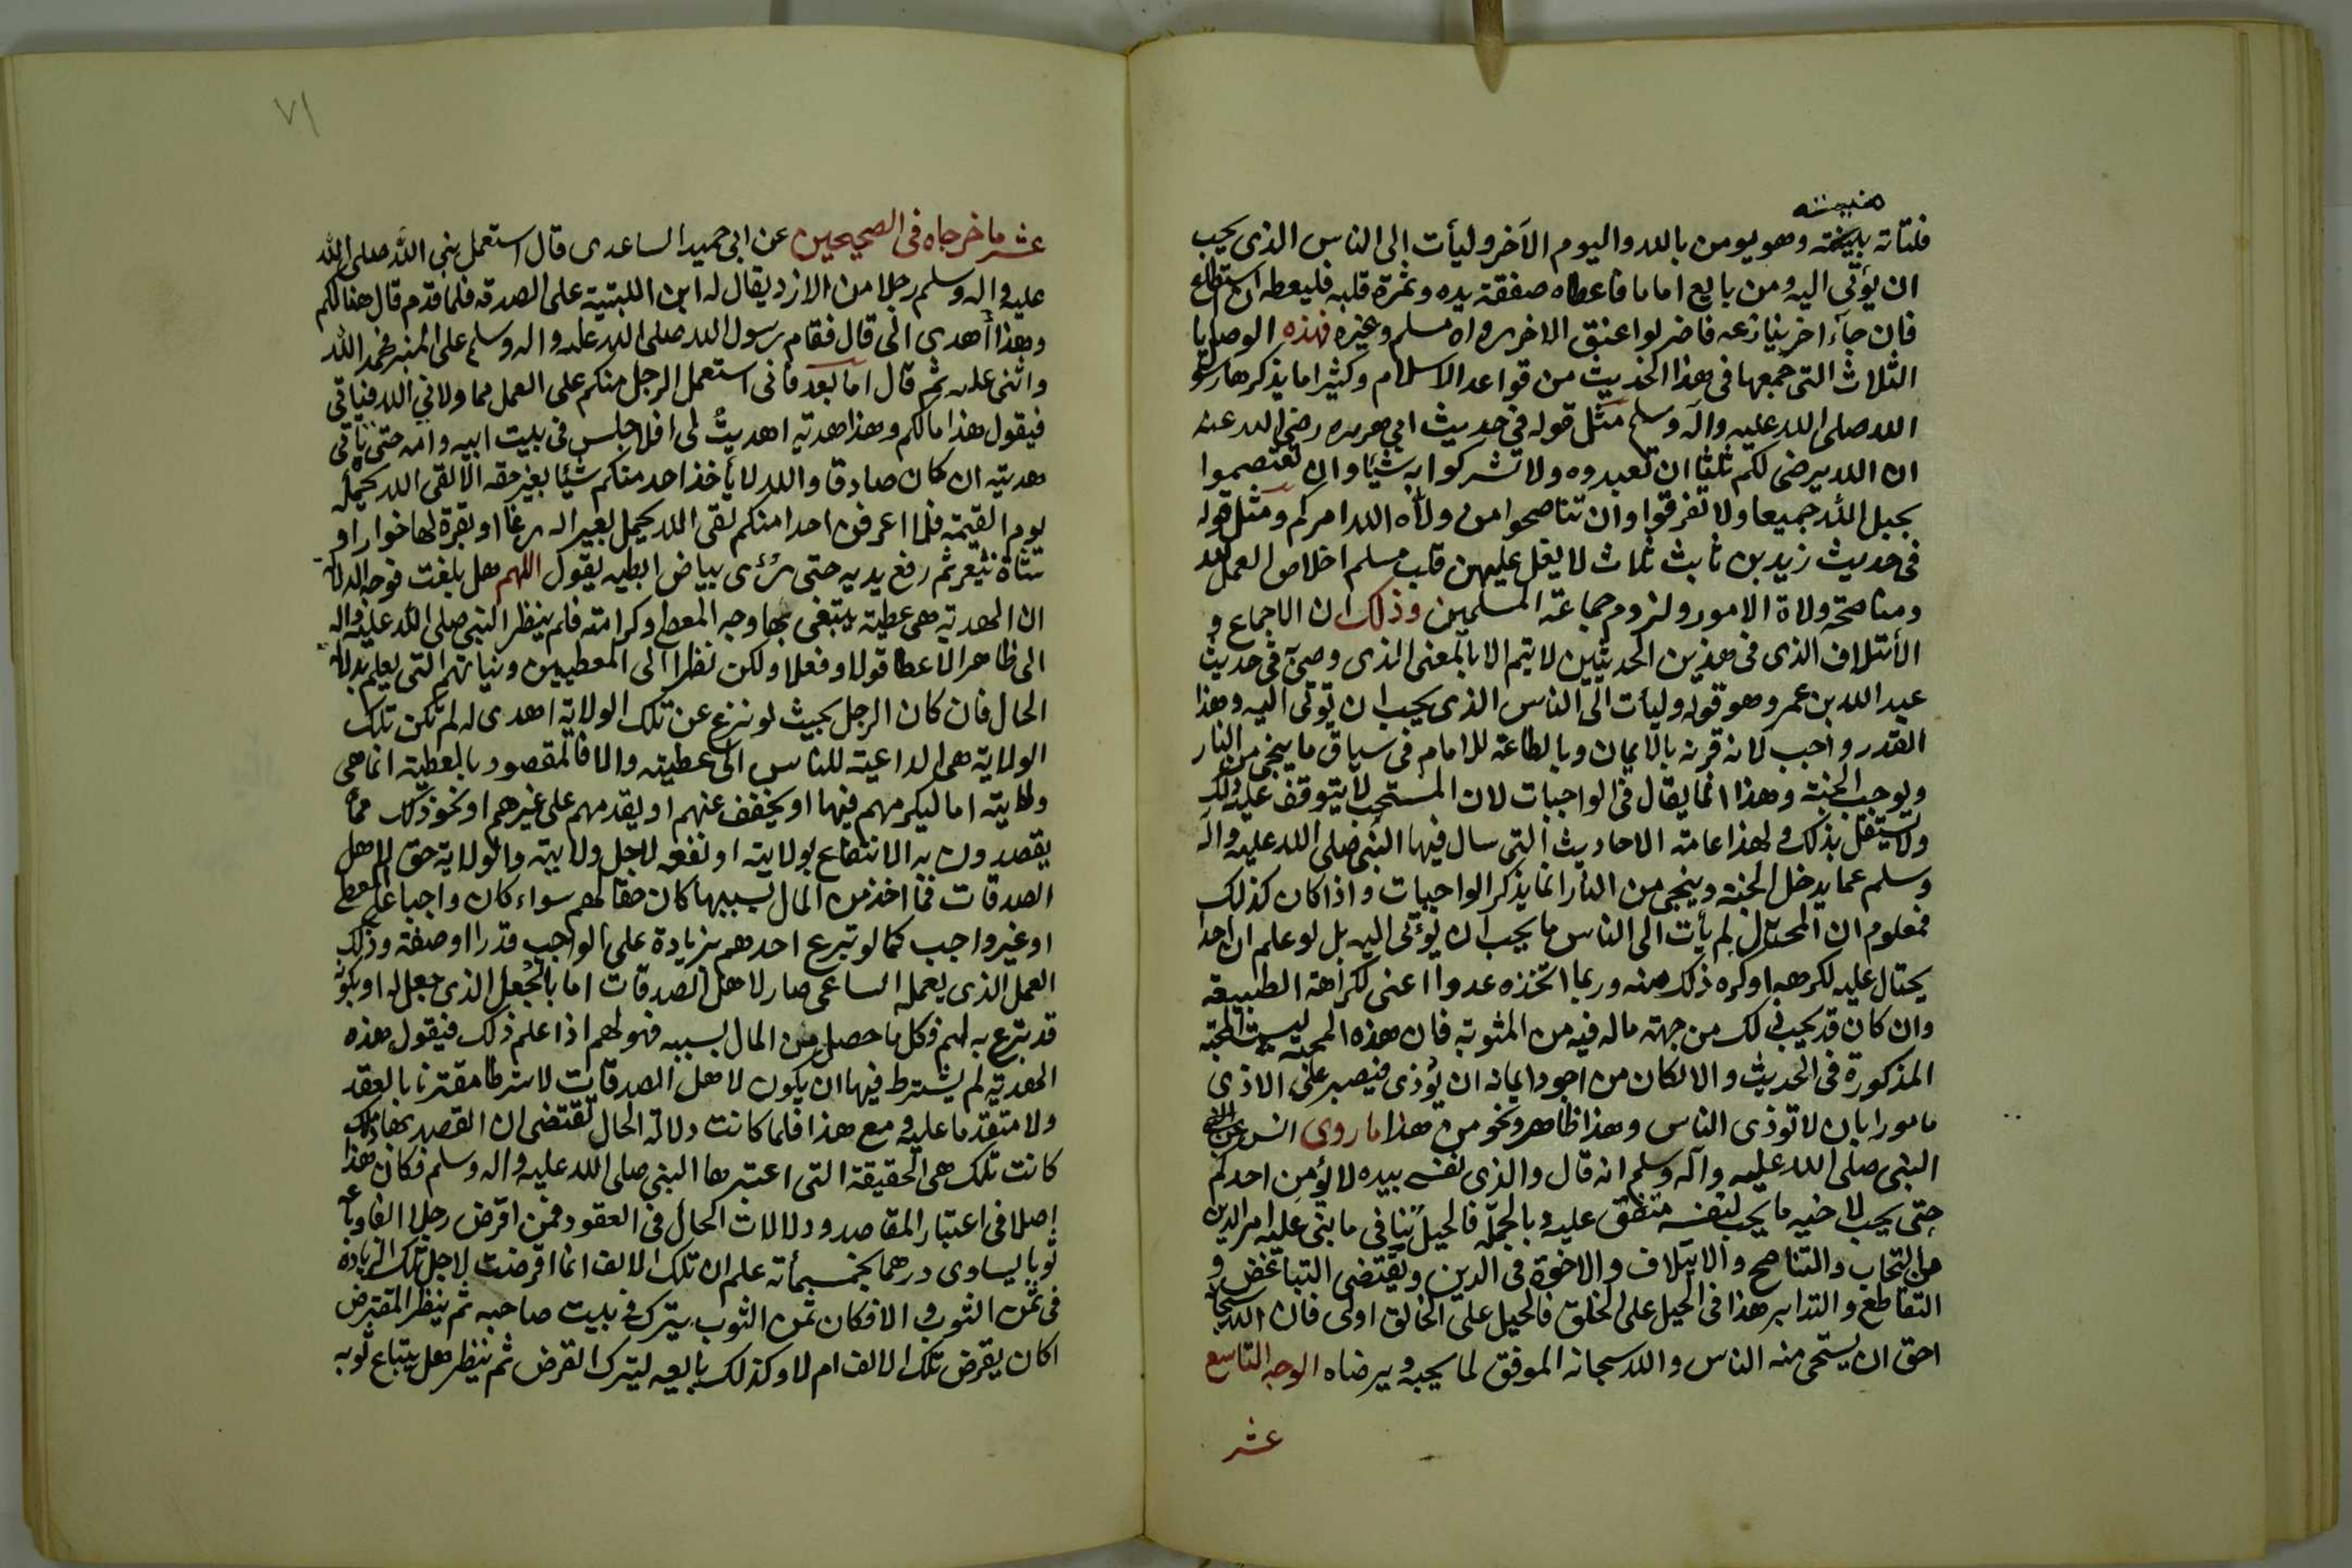 منيته
فلتاته بليخته وهو يومن بالله واليوم الآخر وليأت الى الناس الذى يحب
ان يؤتى اليه ومن بايع اماما فاعطاه صفقة يده وثمرة قلبه فليعطه ان استطاع
فان جآء اخر ينازعه فاضربوا عنق الاخر رواه مسلم وغيره فهذه الوصايا
الثلاث التى جمعها فى هذا الحديث من قواعد الاسلام وكثيرا ما يذكرها رسول
الله صلى الله عليه وآله وسلم مثل قوله فى حديث ابى هريره رضى الله عنه
ان الله يرضى لكم ثلثا ان تعبدوه ولا تشركوا به شيئا وان تعتصموا
بحبل الله جميعا ولا تفرقوا وان تناصحوا من ولاه الله امركم ومثل قوله
فى حديث زيد بن ثابت ثلاث لا يغل عليهن قلب مسلم اخلاص العمل لله
ومناصحة ولاة الامور ولزوم جماعة المسلمين وذلك ان الاجماع و
الأئتلاف الذى فى هذين الحديثين لا يتم الا بالمعنى الذى وصى به فى حديث
عبد الله بن عمرو وهو قوله وليأت الى الناس الذى يحب ان يؤتى اليه وهذا
القدر واجب لانه قرنه بالايمان وبالطاعة للامام فى سياق ما ينجى من النار
ويوجب الجنة وهذا انما يقال فى الواجبات لان المستحب لا يتوقف عليه ذلك
ولا يستقل بذلك ولهذا عامة الاحاديث التى سال فيها النبى صلى الله عليه وآله
وسلم عما يدخل الجنة وينجى من النار انما يذكر الواجبات واذا كان كذلك
فمعلوم ان المحتال لم يأت الى الناس ما يحب ان يؤتى اليه بل لو علم ان احدا
يحتال عليه لكرهه او كره ذلك منه وربما اتخذه عدوا اعنى لكراهة الطبيعة
وان كان قد يحب ذلك من جهة ماله فيه من المثوبة فان هذه المحبة ليست المحبة
المذكورة فى الحديث والا لكان من اجود ايمانه ان يؤذى فيصبر على الاذى
مامورا بان لا توذى الناس وهذا ظاهر ونحو من هذا ما روى انس عن
النبى صلى الله عليه وآله وسلم انه قال والذى نفسه بيده لا يؤمن احدكم
حتى يحب لاخيه ما يحب لنفسه متفق عليه وبالجملة فالحيل تنافى ما بنى عليه امر الدين
من التحاب والتناصح والايتلاف والاخوة فى الدين وتقتضى التباغض و
التقاطع والتدابر هذا فى الحيل على الخلق فالحيل على الخالق اولى فان الله سبحانه
احق ان يستحى منه الناس والله سبحانه الموفق لما يحبه ويرضاه الوجه التاسع
عشر
٧١
عشر ما خرجاه فى الصحيحين عن ابى حميد الساعدى قال استعمل نبى الله صلى الله
عليه واله وسلم رجلا من الازد يقال له ابن اللبتية على الصدقه فلما قدم قال هذا لكم
وهذا أهدى الى قال فقام رسول الله صلى الله عليه واله وسلم على المنبر فحمد الله
واثنى عليه ثم قال اما بعد فانى استعمل الرجل منكم على العمل مما ولانى الله فياتى
فيقول هذا مالكم وهذا هدية اهديتْ لى افلا جلس فى بيت ابيه وامه حتى تأتى
هديته ان كان صادقا والله لا يأخذ احد منكم شيئا بغير حقه الا لقى الله يحمله
يوم القيمة فلا اعرفن احدا منكم لقى الله يحمل بعير اله رغا او بقرة لها خوار او
شاة تيعر ثم رفع يديه حتى رُئى بياض ابطيه يقول اللهم هل بلغت فوجه الدلالة
ان الهدية هى عطية يبتغى بها وجه المعطى وكرامته فلم ينظر النبى صلى الله عليه واله
الى ظاهر الاعطا قولا وفعلا ولكن نظر الى المعطيين ونياتهم التى يعلم بدلالة
الحال فان كان الرجل بحيث لو نزع عن تلك الولاية اهدى له لم تكن تلك
الولاية هى الداعية للناس الى عطيته والا فالمقصود بالعطية انما هى
ولايته اما ليكرمهم فيها او يخفف عنهم او يقدمهم على غيرهم او نحو ذلك مما
يقصدون به الانتفاع بولايته او نفعه لاجل ولايته والولاية حق لاهل
الصدقات فما اخذ من المال بسببها كان حقا لهم سواء كان واجبا على المعطى
او غير واجب كما لو تبرع احدهم بزيادة على الواجب قدرا او صفة وذلك
العمل الذى يعمله الساعى صار لاهل الصدقات اما بالجُعل الذى جعل له او بكونه
قد تبرع به لهم فكل ما حصل من المال بسببه فهو لهم اذا علم ذلك فنقول هذه
الهدية لم يشترط فيها ان يكون لاهل الصدقات لا شرطا مقترنا بالعقد
ولا متقدما عليه ومع هذا فلما كانت دلالة الحال تقتضى ان القصد بها ذلك
كانت تلك هى الحقيقة التى اعتبرها النبى صلى الله عليه واله وسلم فكان هذا
اصلا فى اعتبار المقاصد ودلالات الحال فى العقود فمن اقرض رجلا الفا وباعه
ثوبا يساوى درهما بخمسمأته علم ان تلك الالف انما اقرضت لاجل تلك الزيادة
فى ثمن الثوب والا فكان ثمن الثوب يترك فى بيت صاحبه ثم ينظر المقترض
اكان يقرض تلك الالف ام لا وكذلك بايعه ليترك القرض ثم ينظر هل يبتاع ثوبه